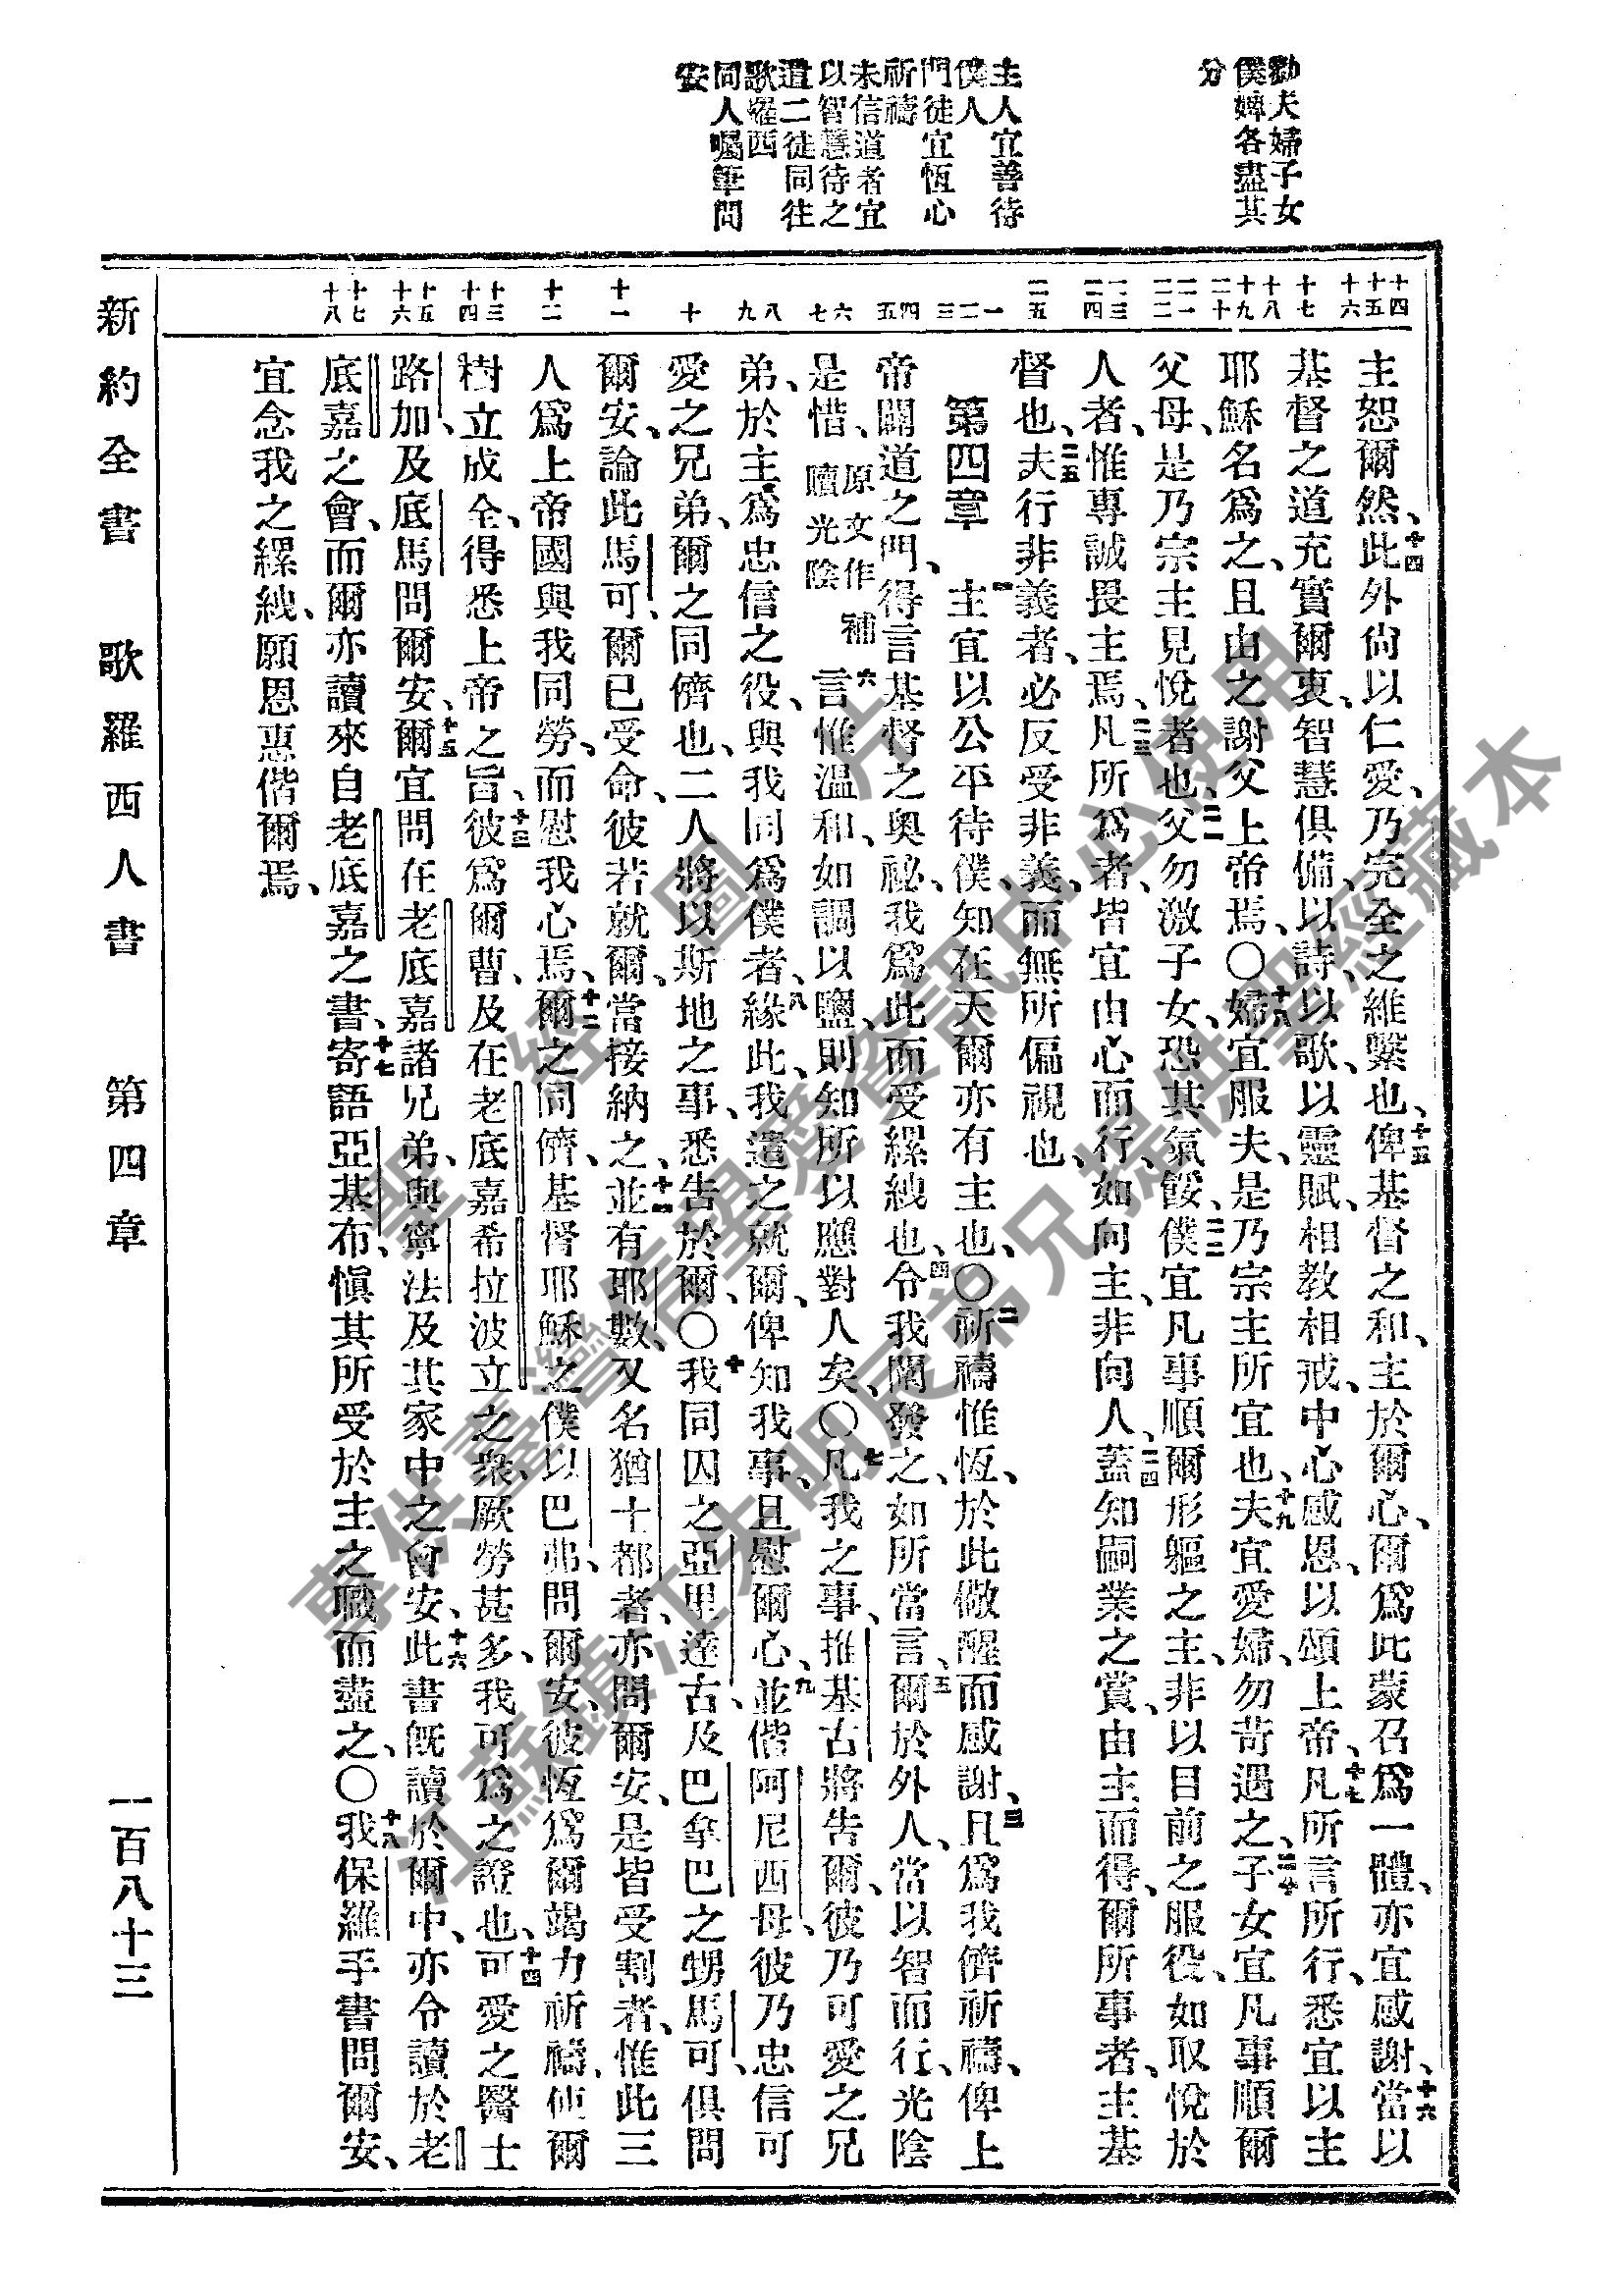 勸夫婦子女
僕婢各盡其
分
主人宜善待
僕人
門徒宜恆心
祈禱
未信道者宜
以智慧待之
遣二徒同往
歌羅西
同人囑筆問
安
十四
十五
十六
十七
十八
十九
二十
二一
二二
二三
二四
二五
一
二
三
四
五
六
七
八
九
十
十一
十二
十三
十四
十五
十六
十七
十八
主恕爾然、十四此外尙以仁愛、乃完全之維繫也、十五俾基督之和、主於爾心、爾爲此蒙召爲一體、亦宜感謝、十六當以
基督之道充實爾衷、智慧俱備、以詩、以歌、以靈賦、相教相戒、中心感恩、以頌上帝、十七凡所言所行、悉宜以主
耶穌名爲之、且由之謝父上帝焉、〇十八婦宜服夫、是乃宗主所宜也、十九夫宜愛婦、勿苛遇之、二十子女宜凡事順爾
父母、是乃宗主見悅者也、二一父勿激子女、恐其氣餒、二二僕宜凡事順爾形軀之主、非以目前之服役、如取悅於
人者、惟專誠畏主焉、二三凡所爲者、皆宜由心而行、如向主、非向人、二四蓋知嗣業之賞、由主而得、爾所事者、主基
督也、二五夫行非義者、必反受非義、而無所偏視也、
第四章 一主宜以公平待僕、知在天爾亦有主也、〇二祈禱惟恆、於此儆醒而感謝、三且爲我儕祈禱、俾上
帝闢道之門、得言基督之奧祕、我爲此而受縲絏也、四令我闡發之、如所當言、五爾於外人、當以智而行、光陰
是惜、原文作補贖光陰六言惟温和、如調以鹽、則知所以應對人矣、〇七凡我之事、推基古將告爾、彼乃可愛之兄
弟、於主爲忠信之役、與我同爲僕者、八緣此、我遣之就爾、俾知我事、且慰爾心、九並偕阿尼西母、彼乃忠信可
愛之兄弟、爾之同儕也、二人將以斯地之事、悉告於爾、〇十我同囚之亞里達古、及巴拿巴之甥馬可、俱問
爾安、論此馬可、爾已受命、彼若就爾、當接納之、十一並有耶數、又名猶士都者、亦問爾安、是皆受割者、惟此三
人爲上帝國與我同勞、而慰我心焉、十二爾之同儕、基督耶穌之僕以巴弗、問爾安、彼恆爲爾竭力祈禱、使爾
樹立成全、得悉上帝之旨、十三彼爲爾曹、及在老底嘉希拉波立之衆、厥勞甚多、我可爲之證也、十四可愛之醫士
路加、及底馬問爾安、十五爾宜問在老底嘉諸兄弟、與寧法及其家中之會安、十六此書旣讀於爾中、亦令讀於老
底嘉之會、而爾亦讀來自老底嘉之書、十七寄語亞基布、愼其所受於主之職而盡之、〇十八我保羅手書問爾安、
宜念我之縲絏、願恩惠偕爾焉、
新約全書 歌羅西人書 第四章 一百八十三
聖經圖片
專供臺灣信望愛資訊中心使用
江蘇鎮江朱明辰弟兄提供聖經藏本